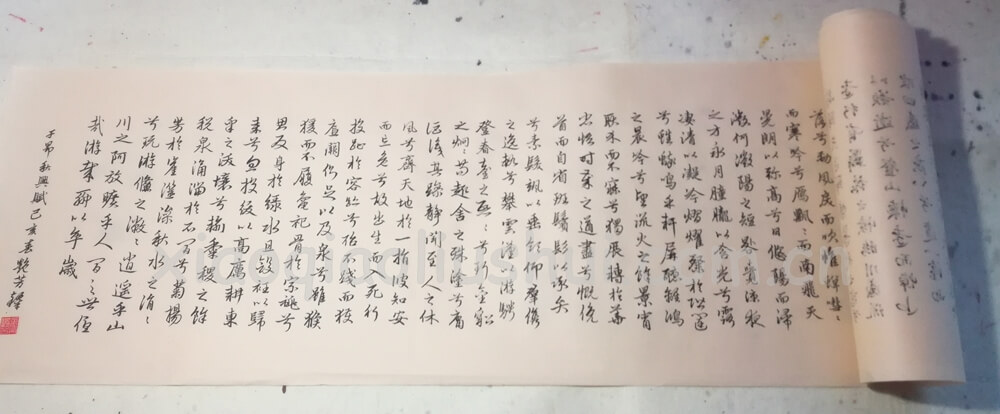 落兮勁風戾而吹帷蟬嘒〻
而寒吟兮雁飄〻而南飛天
晃朗以弥高兮日悠陽而浸
微何微陽之短晷覺涼夜
之方永月朣朧以含光兮露
凄清以凝冷熠耀粲於階闥
兮蟋蟀鳴乎軒屏聽離鴻
之晨吟兮望流火之餘景宵
耿介而不寐兮獨展轉於華
省悟時歲之遒盡兮慨俛
首而自省斑鬢髟以承弁
兮素髮颯以垂領仰群儁
之逸軌兮攀雲漢以游騁
登春臺之熙〻兮珥金貂
之炯〻苟趣舍之殊塗兮庸
詎識其躁靜聞至人之休
風兮齊天地於一指彼知安
而忘危兮故出生而入死行
投趾於容跡兮殆不踐而獲
底闕側足以及泉兮雖猴
猨而不履龜祀骨於宗祧兮
思反身於綠水且斂衽以歸
来兮忽投紱以高厲耕東
皋之沃壤兮輸黍稷之餘
稅泉涌湍於石間兮菊揚
芳於崖澨澡秋水之涓〻
兮玩游儵之潎〻逍遥乎山
川之阿放曠乎人間之世優
哉游哉聊以卒歲
子昂秋興賦己亥春艷芳釋